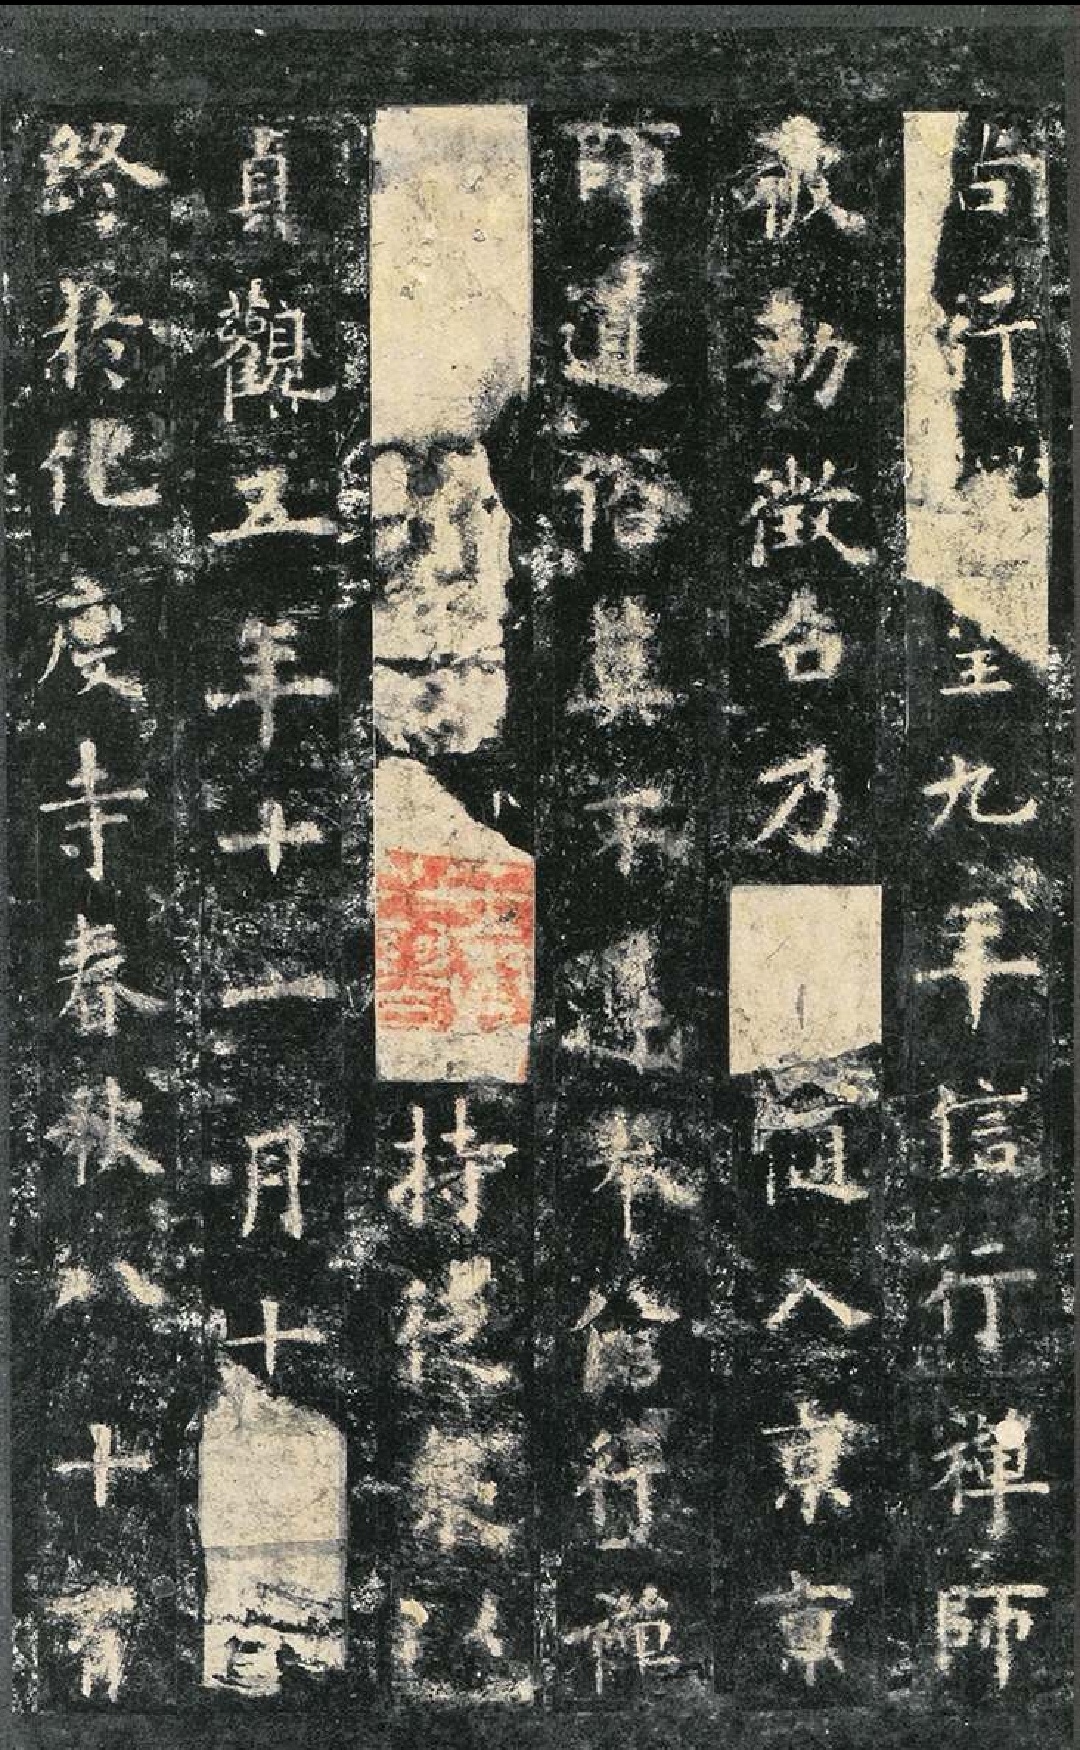 尚行皇九年信行禪師
被勅徵召乃隨入京京
師道俗莫不遵奉信行禪
持徒眾以
貞觀五年十一月十日
終於化度寺春秋八十有